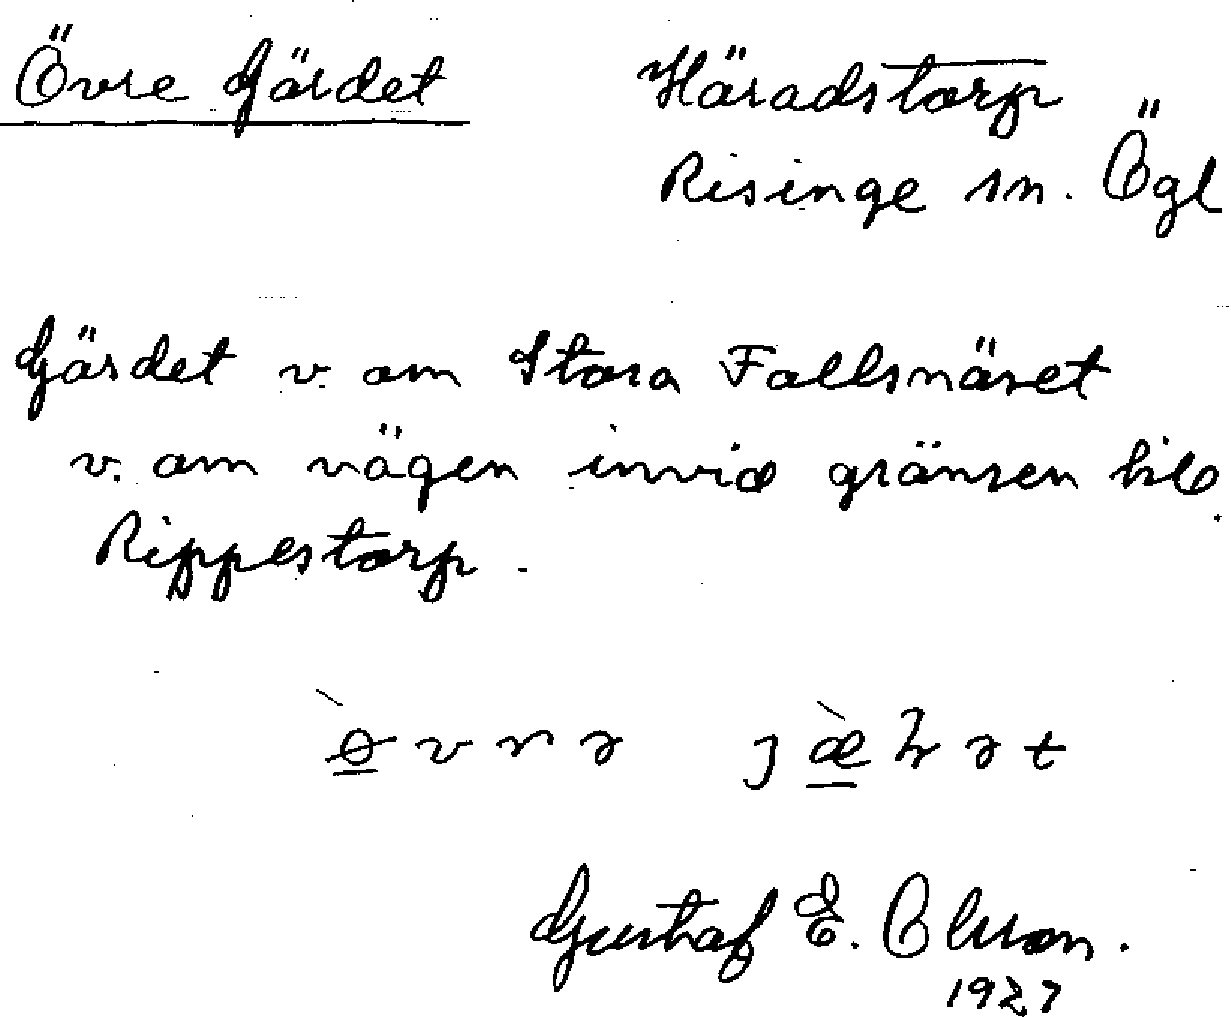 Övre Gärdet
Häradstorp
Risinge sn. Ögl
Gärdet v. om Stora Fallsnäset
v. om vägen invid gränsen till
Rippestorp.
Gustaf E. Olsson.
1927